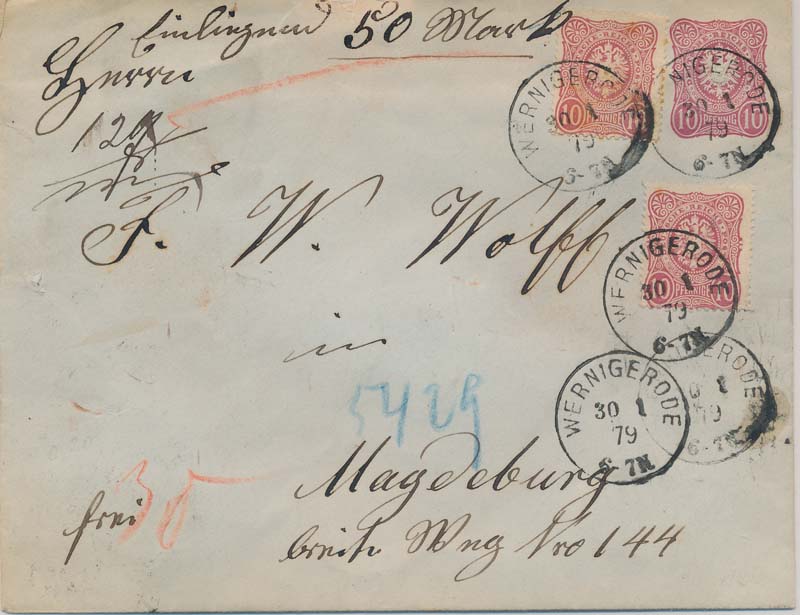 Einliegend 50 Mark
Herrn
F. W. Wolff
in
5429
Magdeburg
frei 30
breite Weg Nro 144
10 PFENNIG
10 PFENNIG 10
PFENNIG 10
WERNIGERODE
30 1
79
6-7N
WERNIGERODE
30 1
79
6-7N
WERNIGERODE
30 1
79
6-7N
WERNIGERODE
30 1
79
6-7N